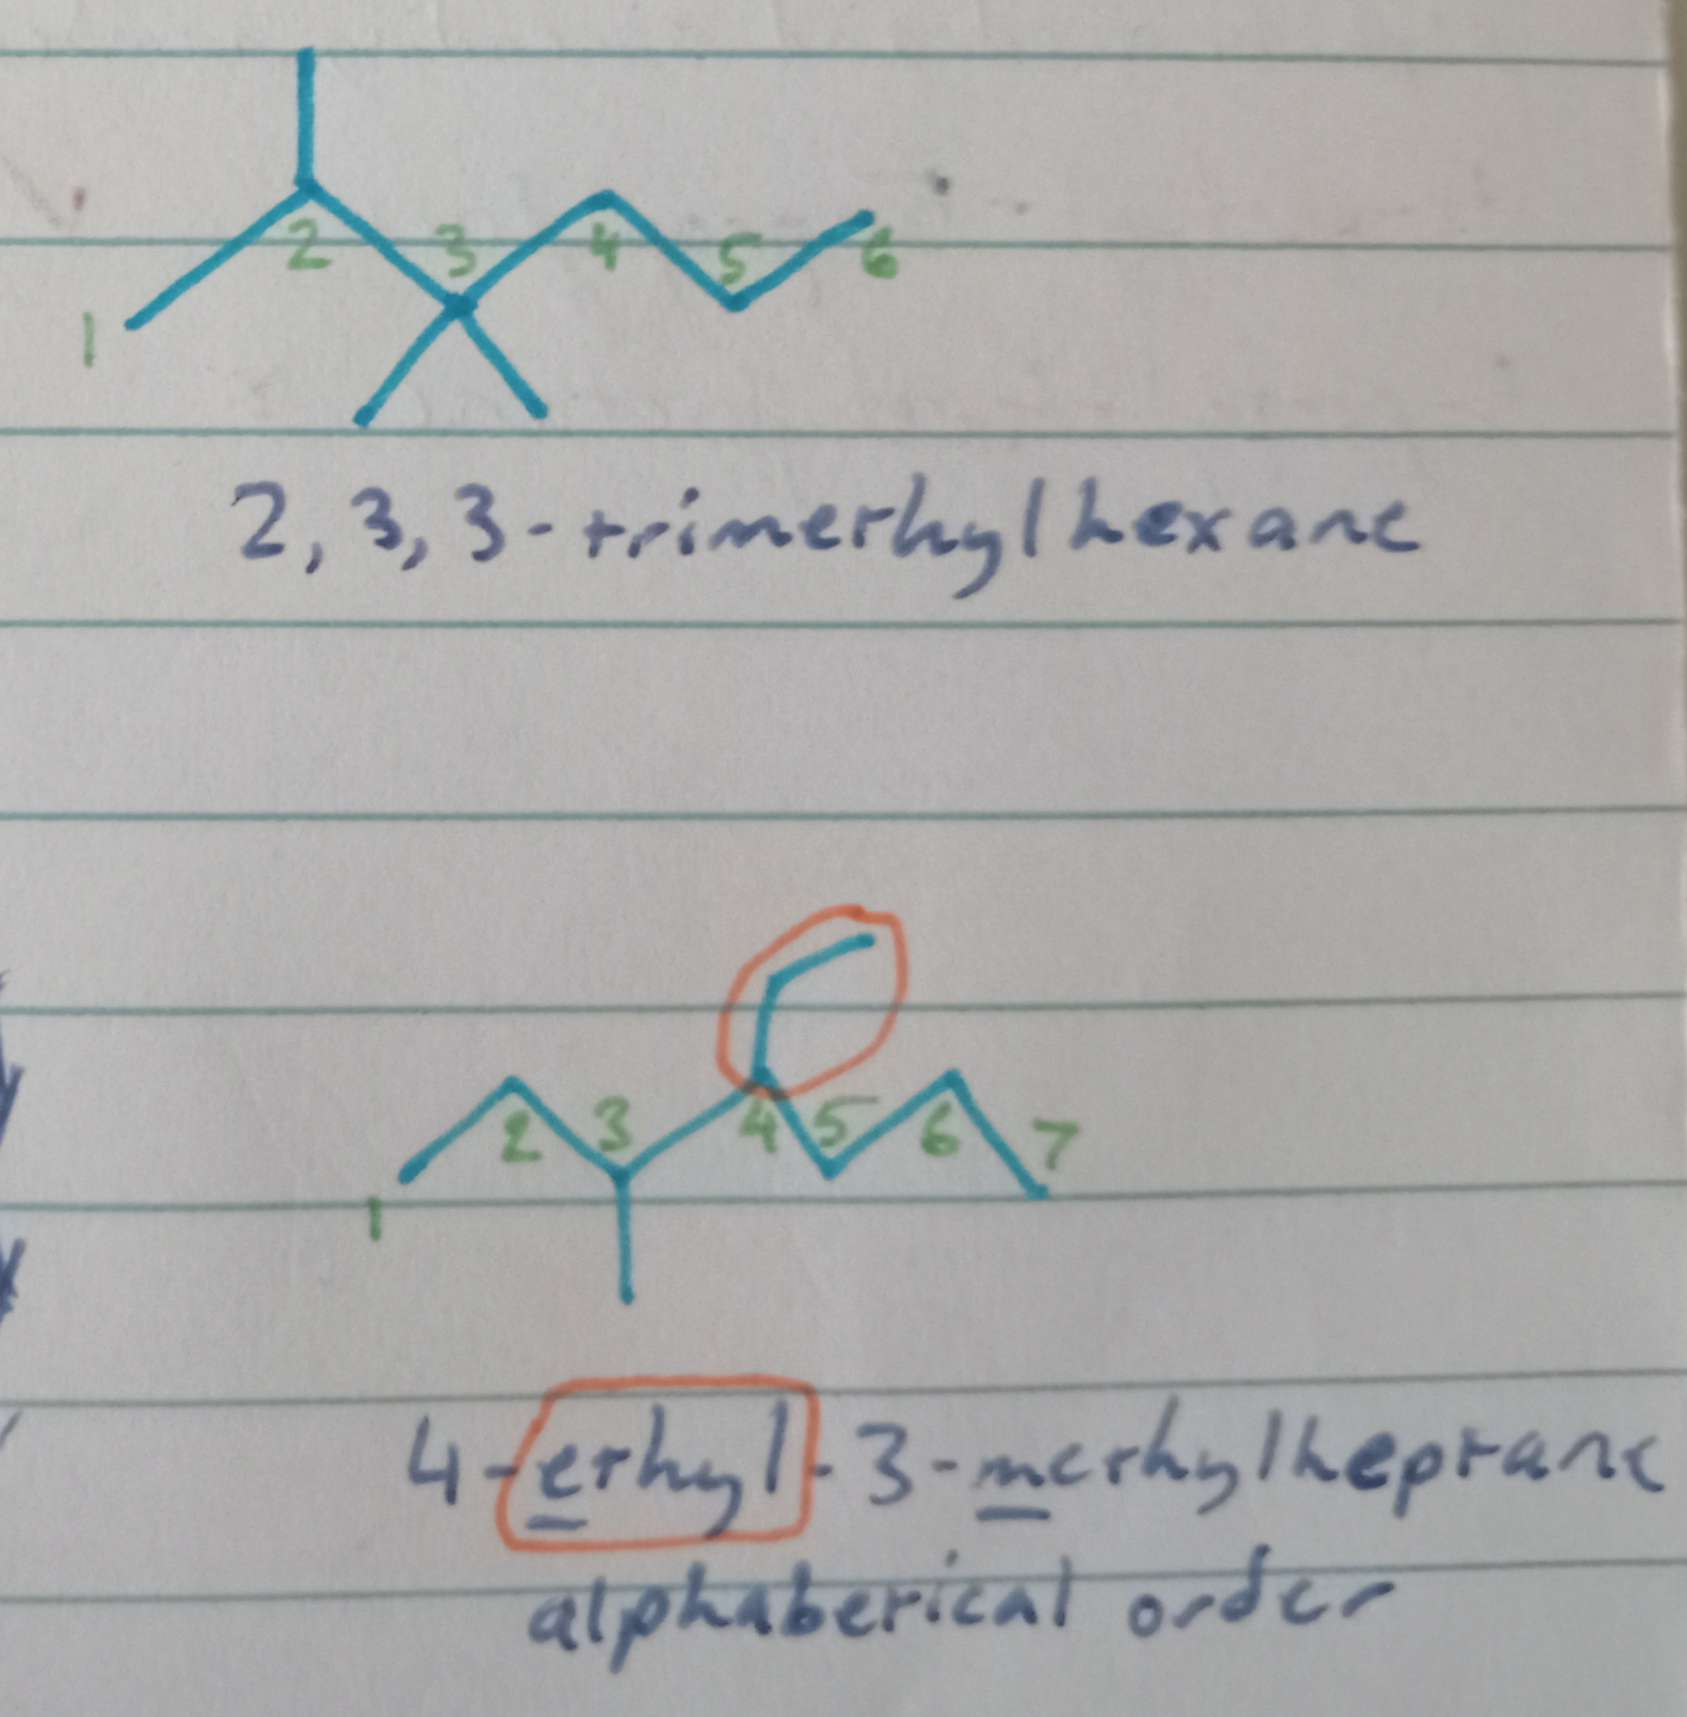 2 3 4 5 6
1
2,3,3-trimethylhexane
2 3 4 5 6 7
1
4-ethyl-3-methylheptane
alphabetical order